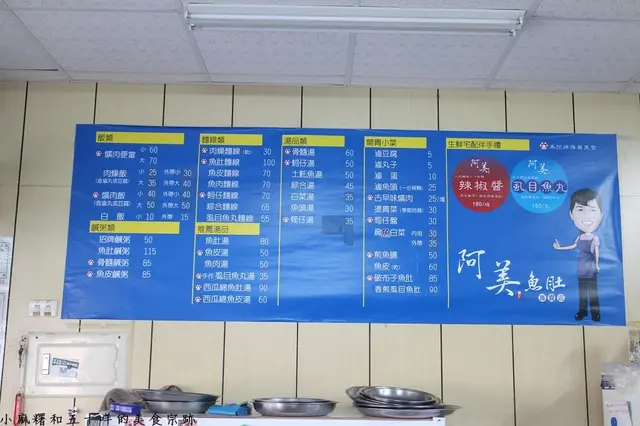 飯類
爌肉便當 小 60
大 70
肉燥飯 小 25 外帶小 30
(密滷丸或豆腐) 大 35 外帶大 40
爌肉飯 小 35 外帶小 40
(密滷丸或豆腐) 大 45 外帶大 50
白飯 小 10 外帶 15
鹹粥類
招牌鹹粥 50
魚肚鹹粥 115
骨髓鹹粥 85
魚皮鹹粥 85
麵線類
肉燥麵線(乾) 30
魚肚麵線 100
魚皮麵線 70
魚肉麵線 70
蚵仔麵線 70
綜合麵線 65
虱目魚丸麵線 55
推薦湯品
魚肚湯 80
魚皮湯 50
魚肉湯 50
手作虱目魚丸湯 35
西瓜綿魚肚湯 90
西瓜綿魚皮湯 60
湯品類
骨髓湯 60
蚵仔湯 50
土魠魚湯 50
綜合湯 45
白菜湯 35
魚頭湯 30
蜊仔湯 35
開胃小菜
滷豆腐 5
滷丸子 5
滷蛋 10
滷魚頭 25
古早味爌肉 25/塊
燙青菜 30
蜊仔盤 30
扁魚白菜 內用 30
外帶 35
煎魚腸 50
魚皮(乾) 60
破布子魚肚 85
香煎虱目魚肚 90
生鮮宅配伴手禮
阿美
辣椒醬
180/1罐
阿美
虱目魚丸
阿美魚肚
專賣店
小麻糬和五十件的美食宗跡